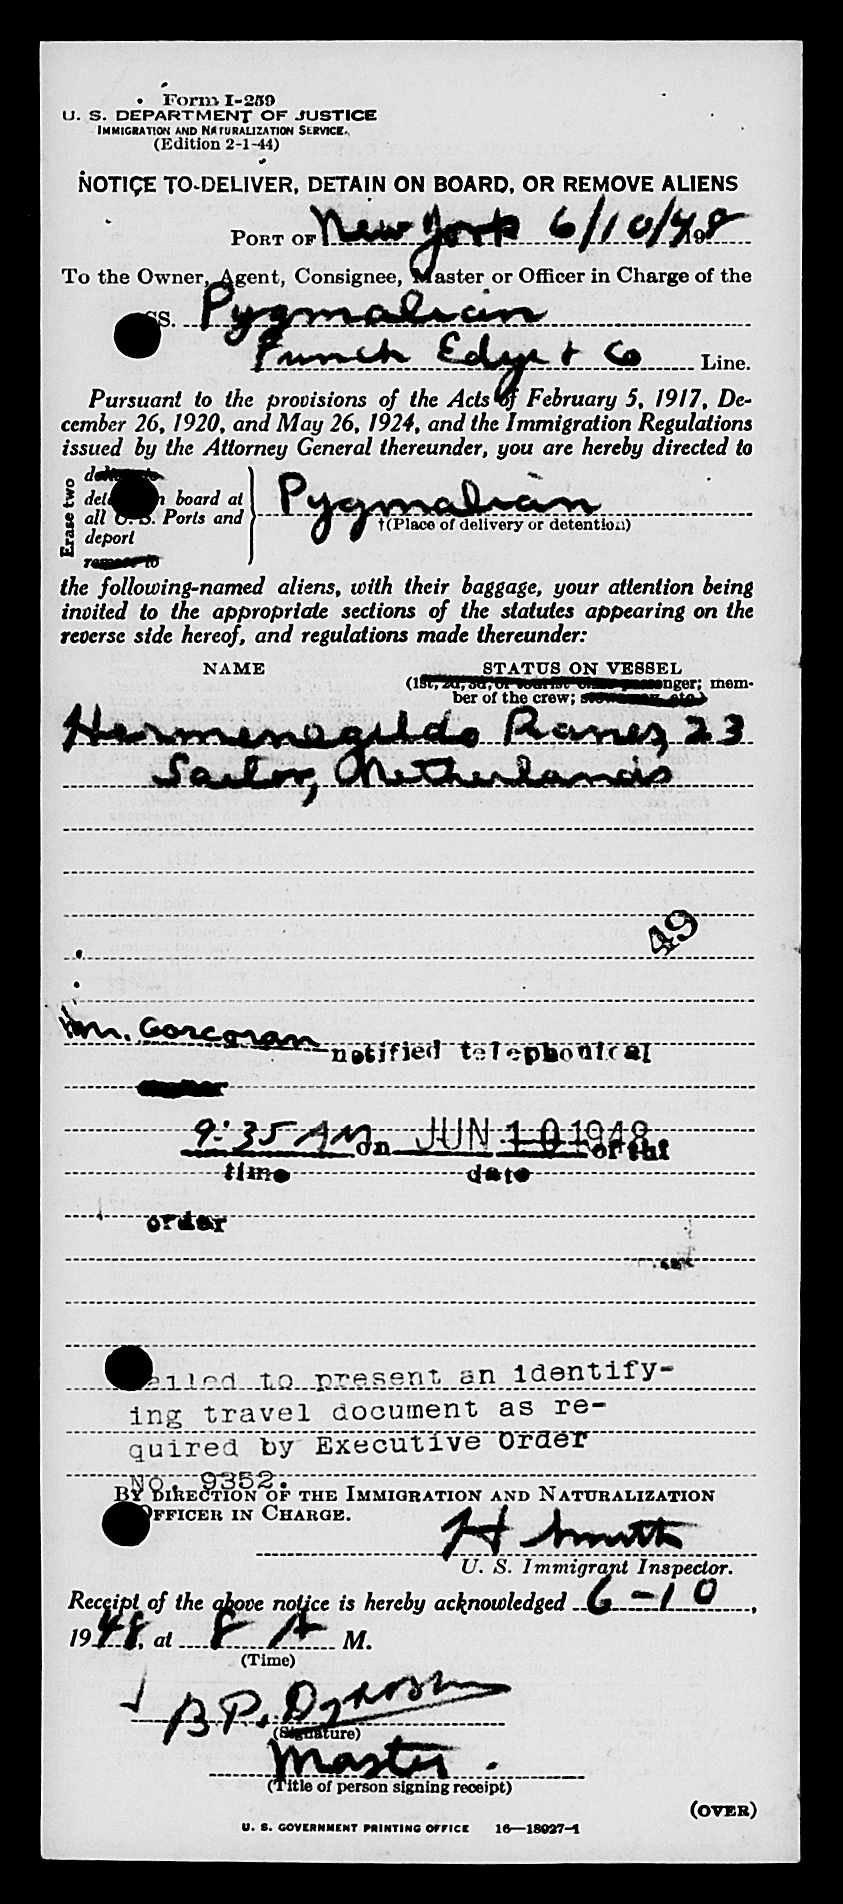 Form I-259
U. S. DEPARTMENT OF JUSTICE
IMMIGRATION AND NATURALIZATION SERVICE
(Edition 2-1-44)
NOTICE TO DELIVER, DETAIN ON BOARD, OR REMOVE ALIENS
PORT OF New York 6/10/48 19
To the Owner, Agent, Consignee, Master or Officer in Charge of the
SS. Pygmalian
Funch Edye & Co Line.
Pursuant to the provisions of the Acts of February 5, 1917, De-
cember 26, 1920, and May 26, 1924, and the Immigration Regulations
issued by the Attorney General thereunder, you are hereby directed to
Erase two
board at
all U. S. Ports and
deport
remove to
Pygmalian
†(Place of delivery or detention)
the following-named aliens, with their baggage, your attention being
invited to the appropriate sections of the statutes appearing on the
reverse side hereof, and regulations made thereunder:
NAME STATUS ON VESSEL
(1st, 2d, 3d, or tourist class passenger; mem-
ber of the crew;
Hermenegildo 23
Sailor, Netherlands
49
Mr. Corcoran notified telephonical
9:35 AM on JUN 10 1948 of the
time date
order
to present an identify-
ing travel document as re-
quired by Executive Order
No. 9352.
BY DIRECTION OF THE IMMIGRATION AND NATURALIZATION
OFFICER IN CHARGE.
H Smith
U. S. Immigrant Inspector.
Receipt of the above notice is hereby acknowledged 6-10,
1948, at 8 A M.
(Time)
B P.
(Signature)
Master.
(Title of person signing receipt)
(OVER)
U. S. GOVERNMENT PRINTING OFFICE 16—18927-1